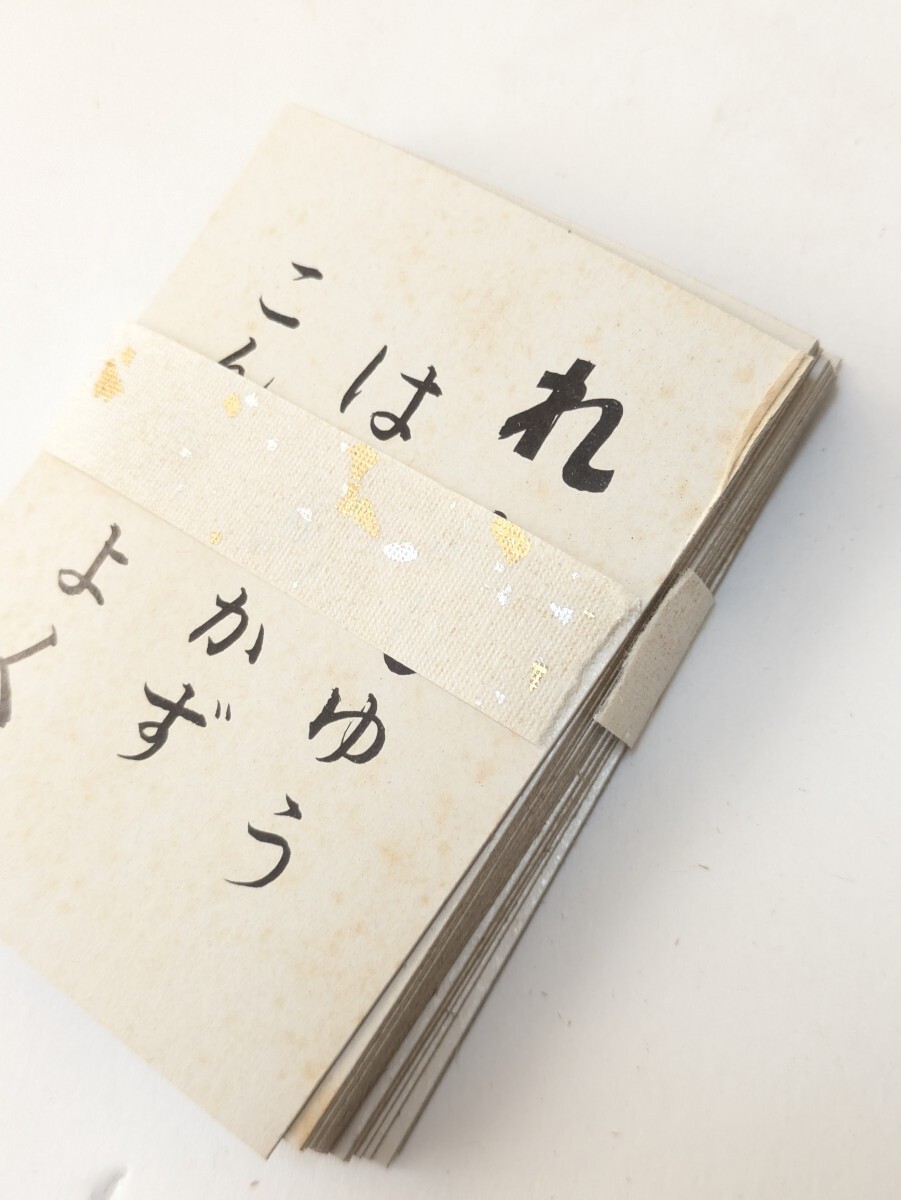 れ ゆう
は かず
こん よく